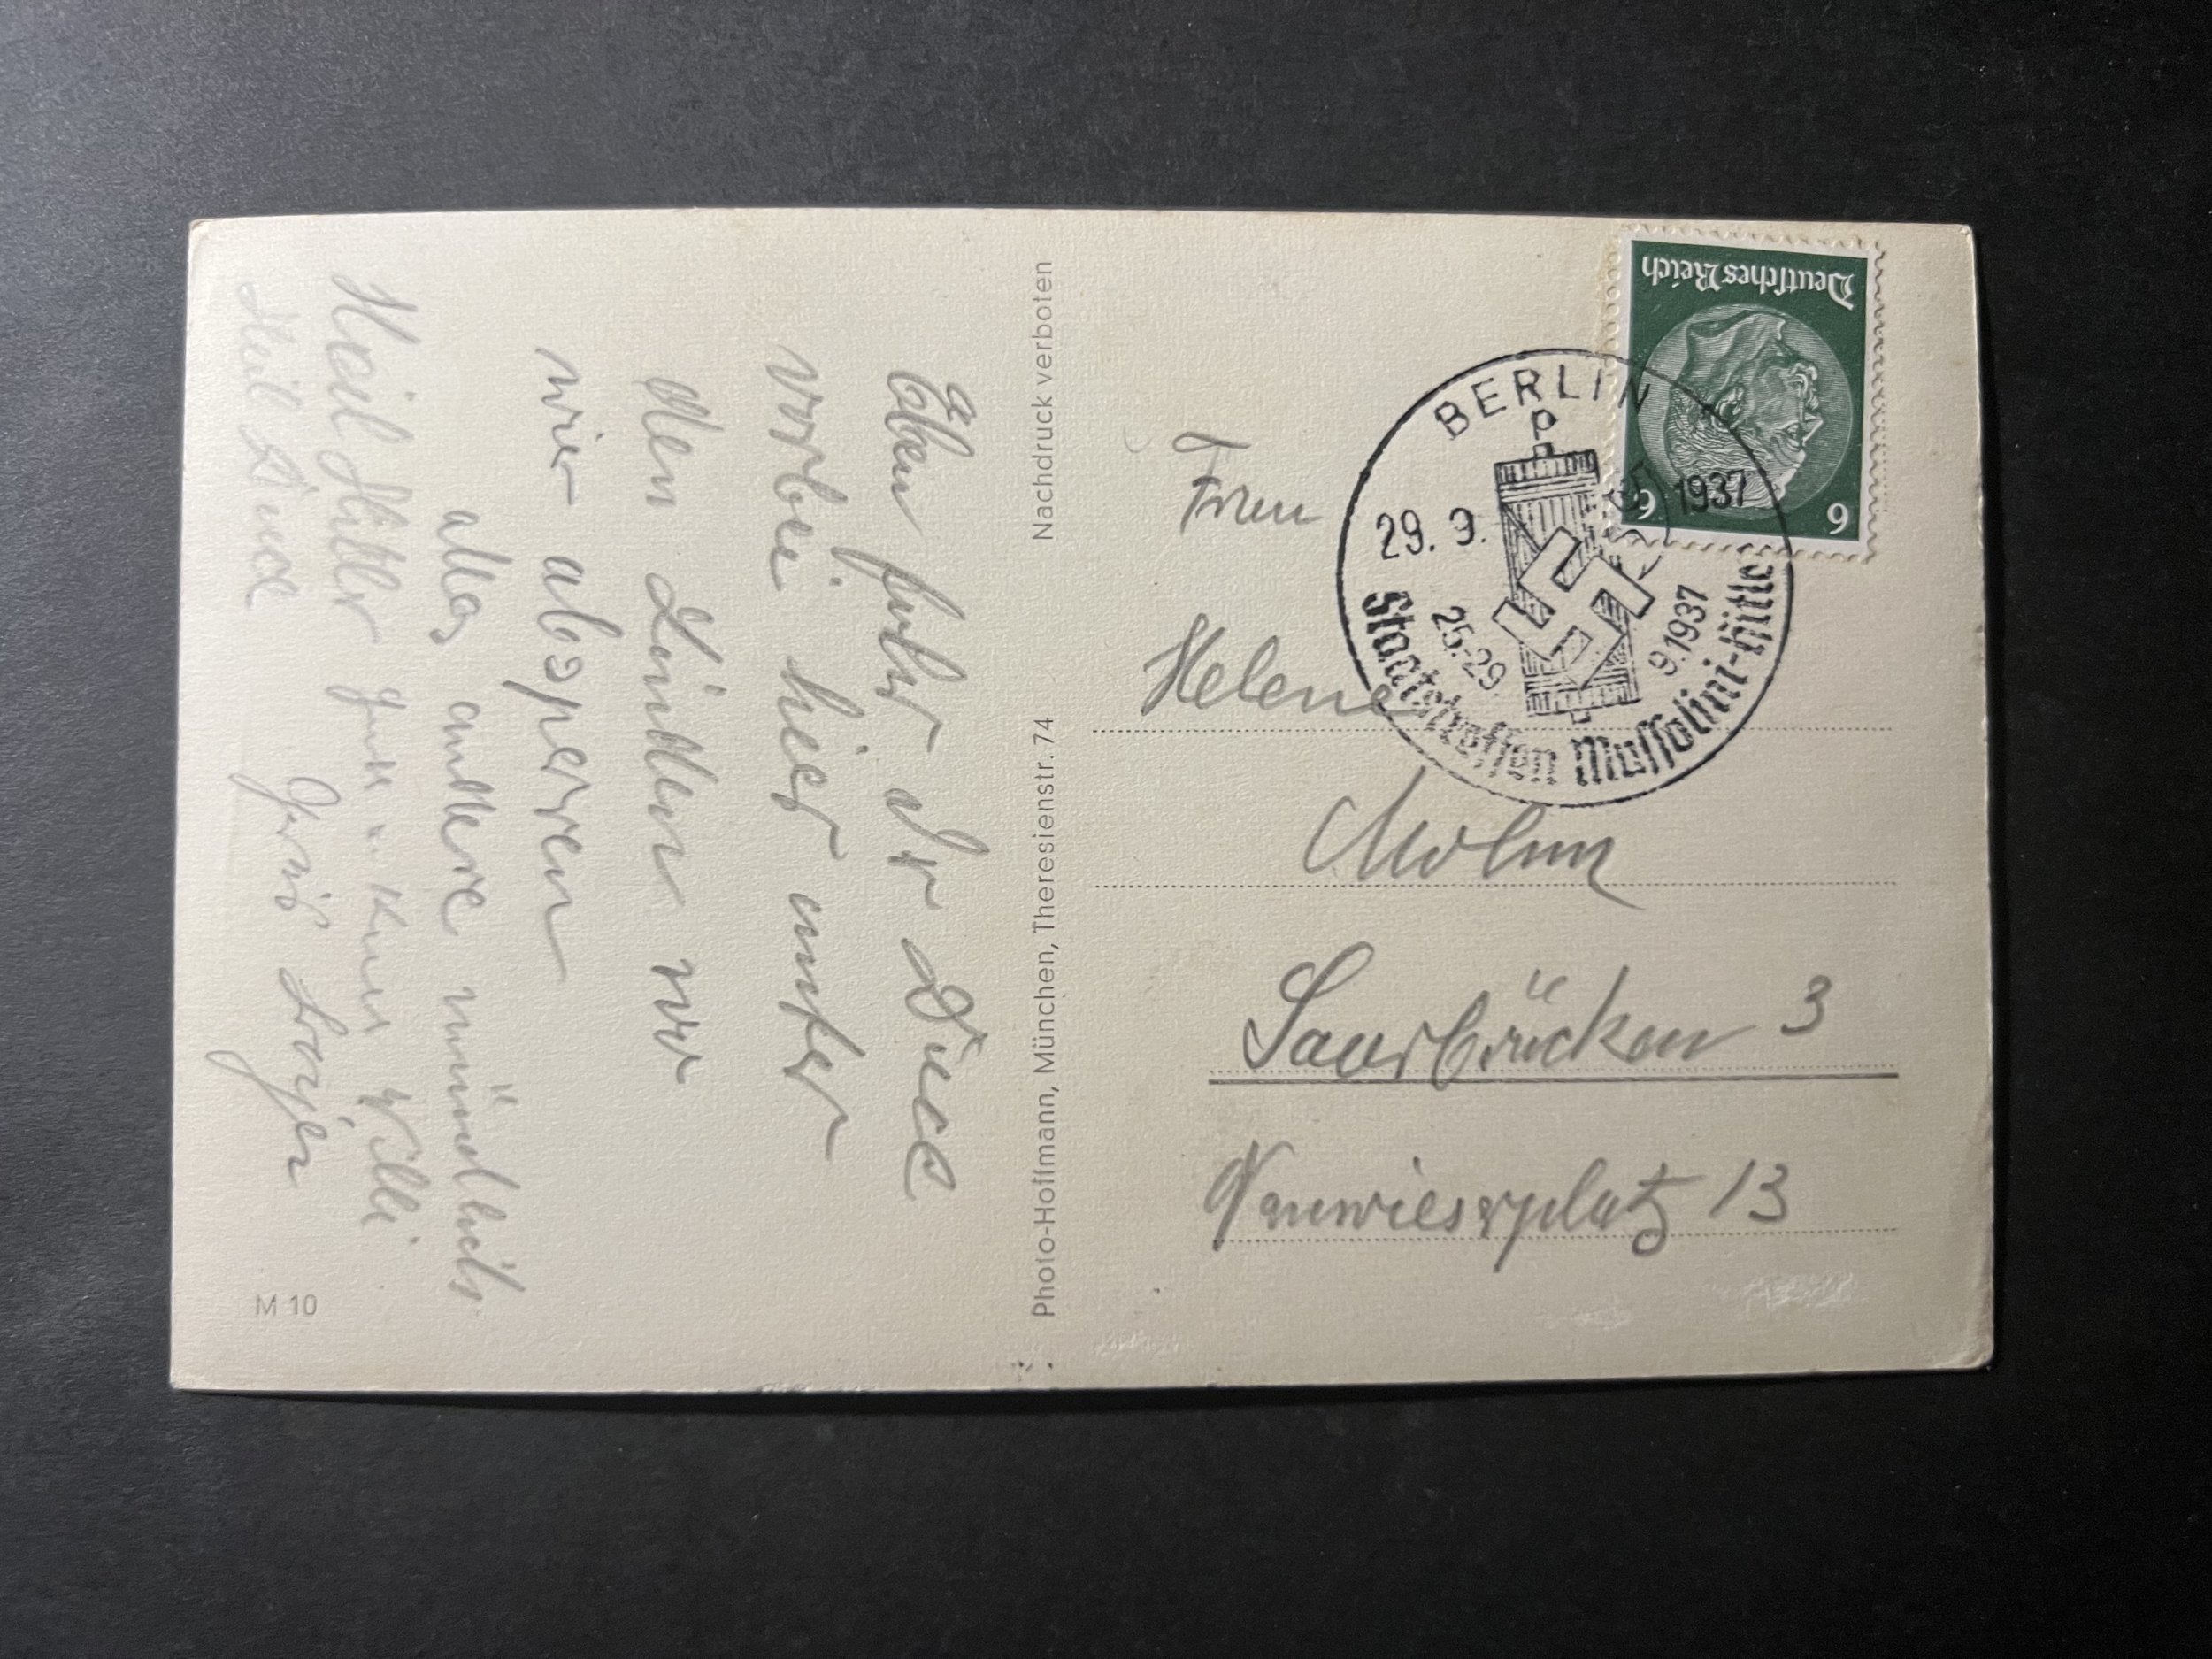 Eben fuhr der Duce
vorbei hier unter
den Linden wo
wir absperren
alles andere mündlich
Heil Hitler Gruß u. Kuss Willi
Heil Duce
Gruß
M 10
Nachdruck verboten
Photo-Hoffmann, München, Theresienstr. 74
Deutsches Reich
6 6
BERLIN
P
29. 9. 1937
25.-29. 9.1937
Staatstreffen Mussolini-Hitle
Frau
Helene
Mohm
Saarbrücken 3
Nauwieserplatz 13